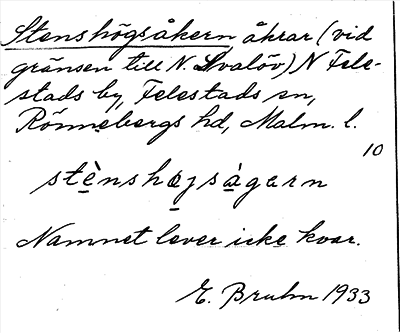 Stenshögsåkern åkrar (vid
gränsen till N. Svalöv) N Fele-
stads by, Felestads sn,
Rönnebergs hd, Malm. l.
10
stènshøjsàgarn
Namnet lever icke kvar.
E. Bruhn 1933